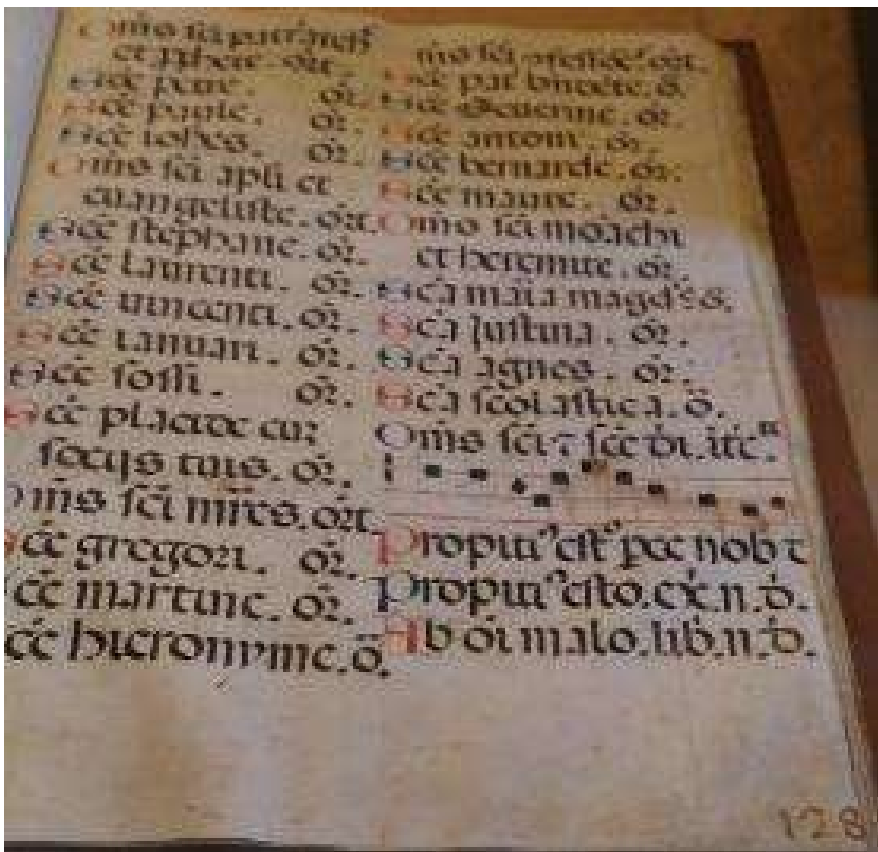 Oms sci patriarch
et pphete. ort.
Sce petre. or.
Sce paule. or.
Sce iohes. or.
Oms sci apli et
euangeliste. ort.
Sce stephane. or.
Sce laurenti. or.
Sce uincenti. or.
Sce ianuari. or.
Sce sossi. or.
Sce placide cu
socijs tuis. or.
Oms sci mres. ort
Sce gregori. or.
Sce martine. or.
Sce hieronyme. o.
oms sci ort.
Sce pat bndcte. o.
Sce seuerine. or.
Sce antoni. or.
Sce bernarde. or.
Sce maure. or.
Oms sci moachi
et heremite. or.
Sca maia magd. o.
Sca Justina. or.
Sca agnes. or.
Sca scolastica. o.
Oms sci et sce di. itc.
Propiti est pce nob
Propiti esto. ex. n. d.
Ab oi malo. lib. n. d.
128